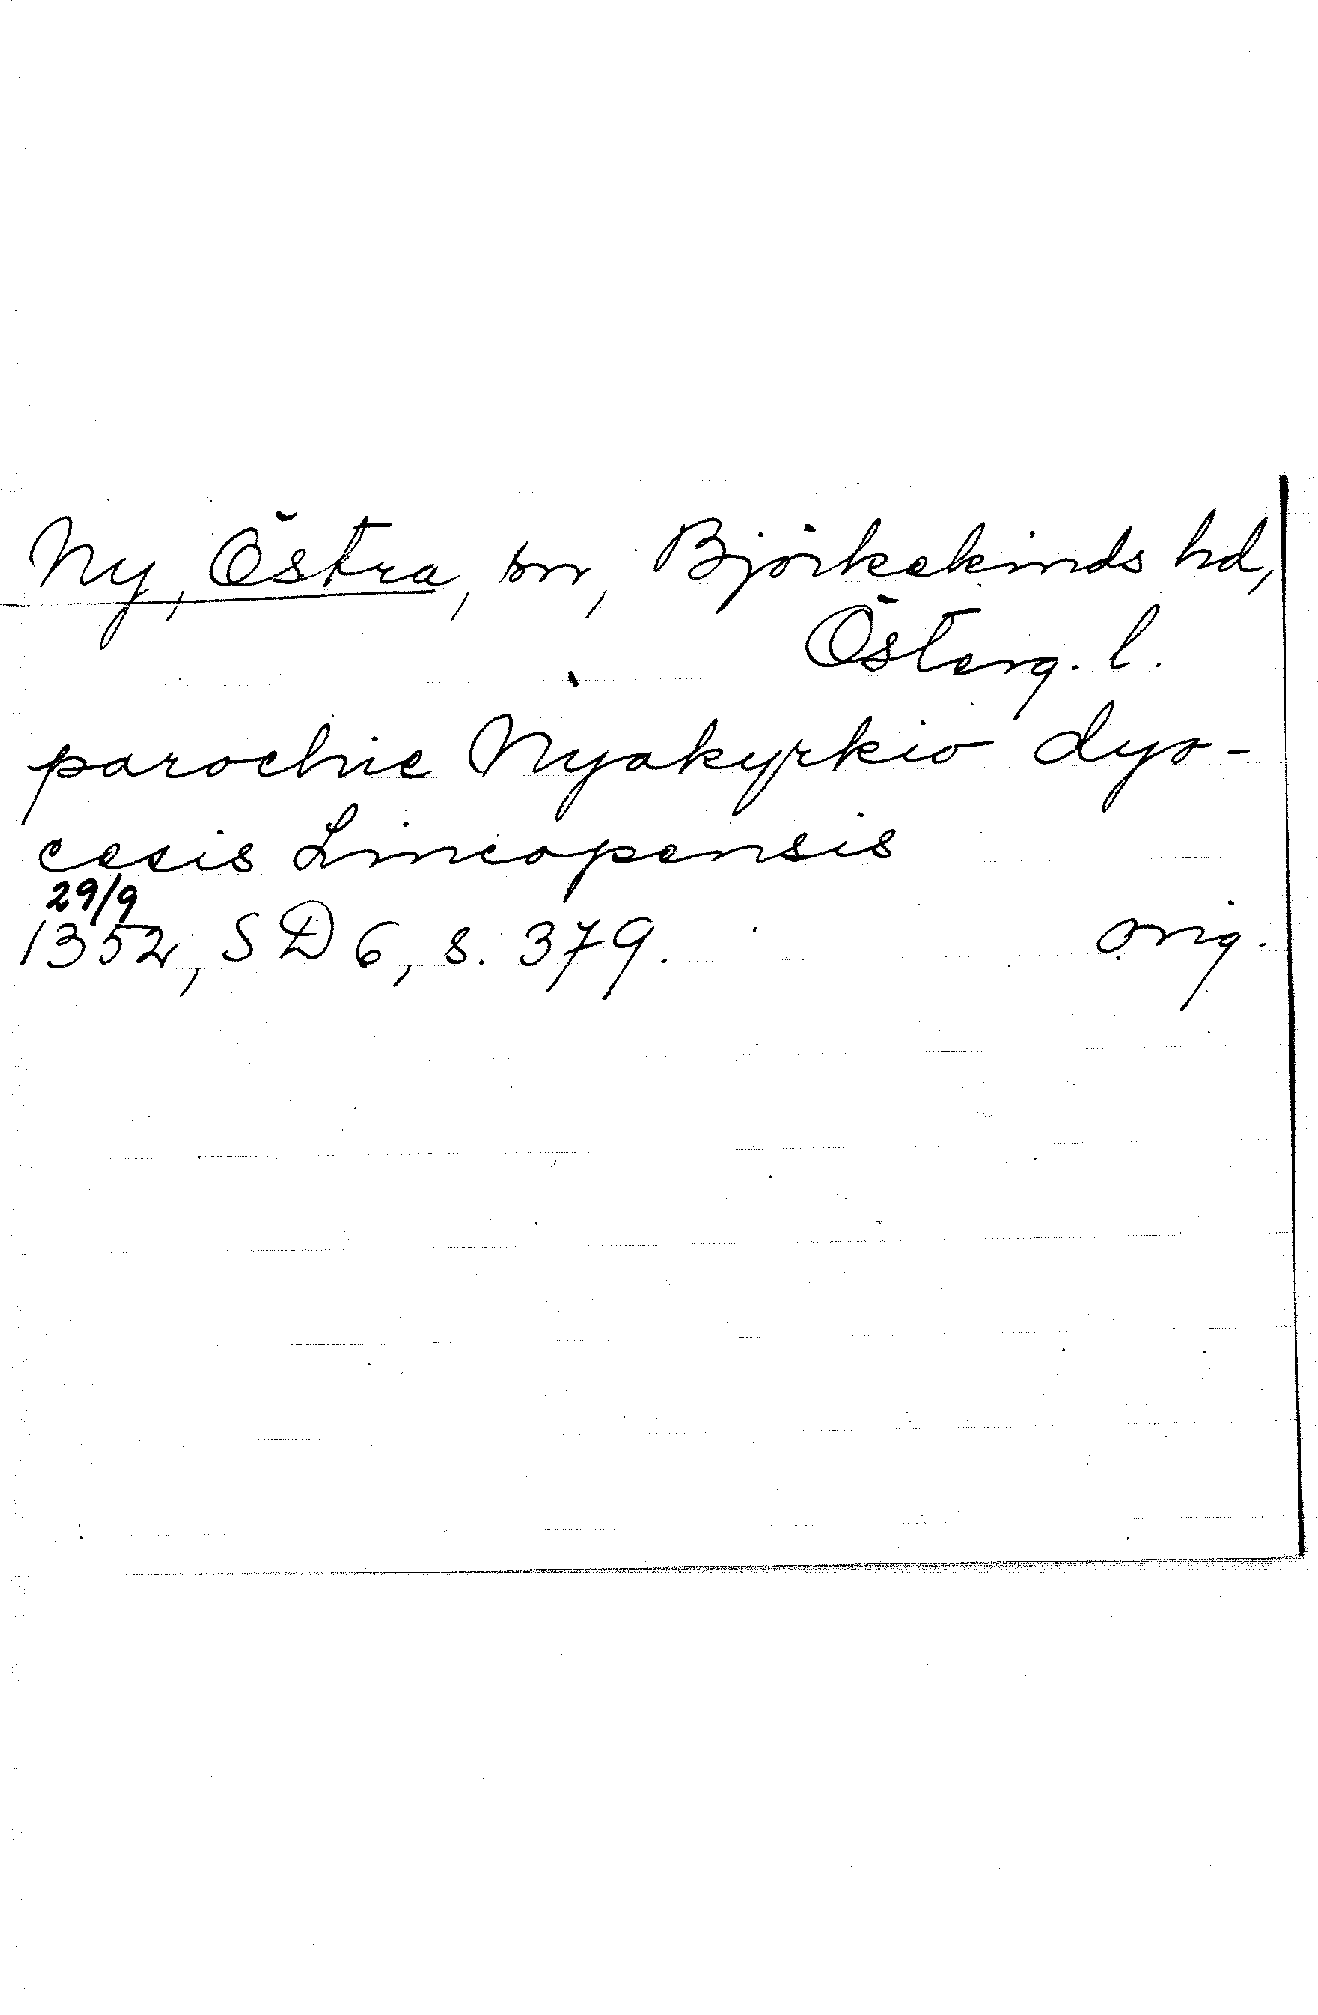 Ny, Östra, sn, Björkekinds hd,
Österg. l.
parochie Nyakyrkio dyo-
cesis Lincopensis
29/9
1352, SD 6, s. 379. orig.